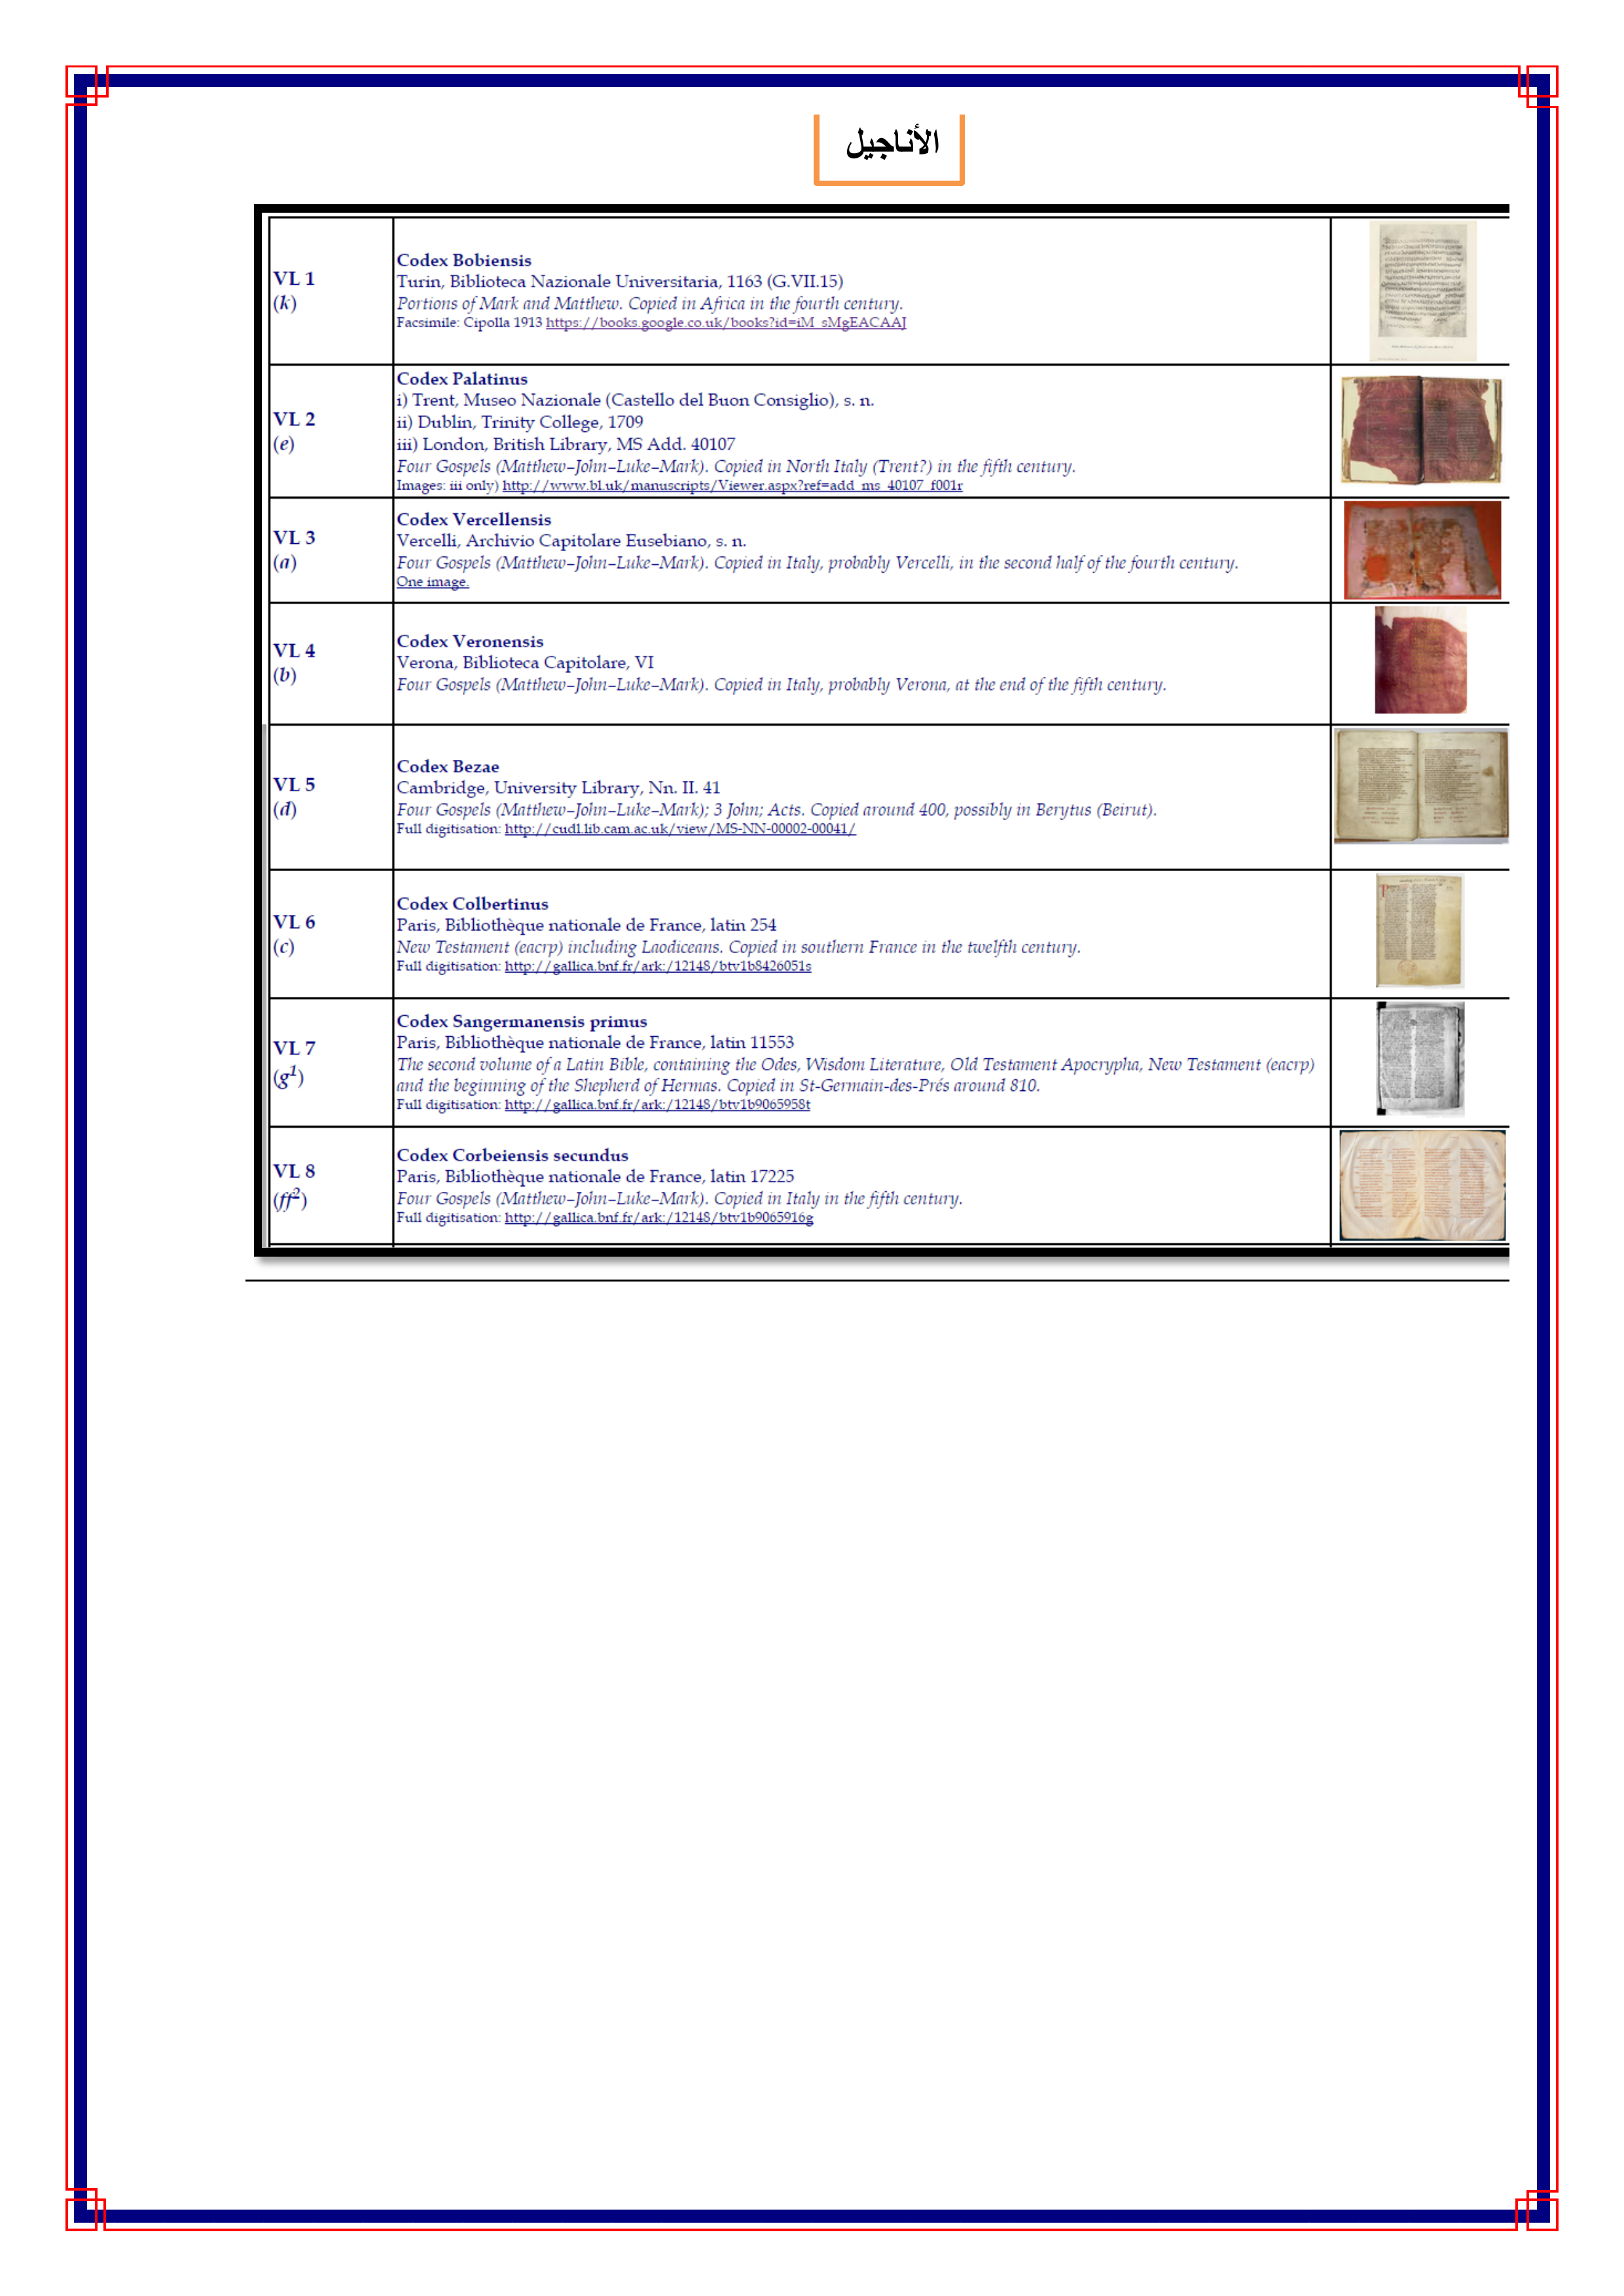 الأناجيل
VL 1
(k)
Codex Bobiensis
Turin, Biblioteca Nazionale Universitaria, 1163 (G.VII.15)
Portions of Mark and Matthew. Copied in Africa in the fourth century.
Facsimile: Cipolla 1913 https://books.google.co.uk/books?id=iM_sMgEACAAJ
VL 2
(e)
Codex Palatinus
i) Trent, Museo Nazionale (Castello del Buon Consiglio), s. n.
ii) Dublin, Trinity College, 1709
iii) London, British Library, MS Add. 40107
Four Gospels (Matthew–John–Luke–Mark). Copied in North Italy (Trent?) in the fifth century.
Images: iii only) http://www.bl.uk/manuscripts/Viewer.aspx?ref=add_ms_40107_f001r
VL 3
(a)
Codex Vercellensis
Vercelli, Archivio Capitolare Eusebiano, s. n.
Four Gospels (Matthew–John–Luke–Mark). Copied in Italy, probably Vercelli, in the second half of the fourth century.
One image.
VL 4
(b)
Codex Veronensis
Verona, Biblioteca Capitolare, VI
Four Gospels (Matthew–John–Luke–Mark). Copied in Italy, probably Verona, at the end of the fifth century.
VL 5
(d)
Codex Bezae
Cambridge, University Library, Nn. II. 41
Four Gospels (Matthew–John–Luke–Mark); 3 John; Acts. Copied around 400, possibly in Berytus (Beirut).
Full digitisation: http://cudl.lib.cam.ac.uk/view/MS-NN-00002-00041/
VL 6
(c)
Codex Colbertinus
Paris, Bibliothèque nationale de France, latin 254
New Testament (eacrp) including Laodiceans. Copied in southern France in the twelfth century.
Full digitisation: http://gallica.bnf.fr/ark:/12148/btv1b8426051s
VL 7
(g1)
Codex Sangermanensis primus
Paris, Bibliothèque nationale de France, latin 11553
The second volume of a Latin Bible, containing the Odes, Wisdom Literature, Old Testament Apocrypha, New Testament (eacrp)
and the beginning of the Shepherd of Hermas. Copied in St-Germain-des-Prés around 810.
Full digitisation: http://gallica.bnf.fr/ark:/12148/btv1b9065958t
VL 8
(ff2)
Codex Corbeiensis secundus
Paris, Bibliothèque nationale de France, latin 17225
Four Gospels (Matthew–John–Luke–Mark). Copied in Italy in the fifth century.
Full digitisation: http://gallica.bnf.fr/ark:/12148/btv1b9065916g